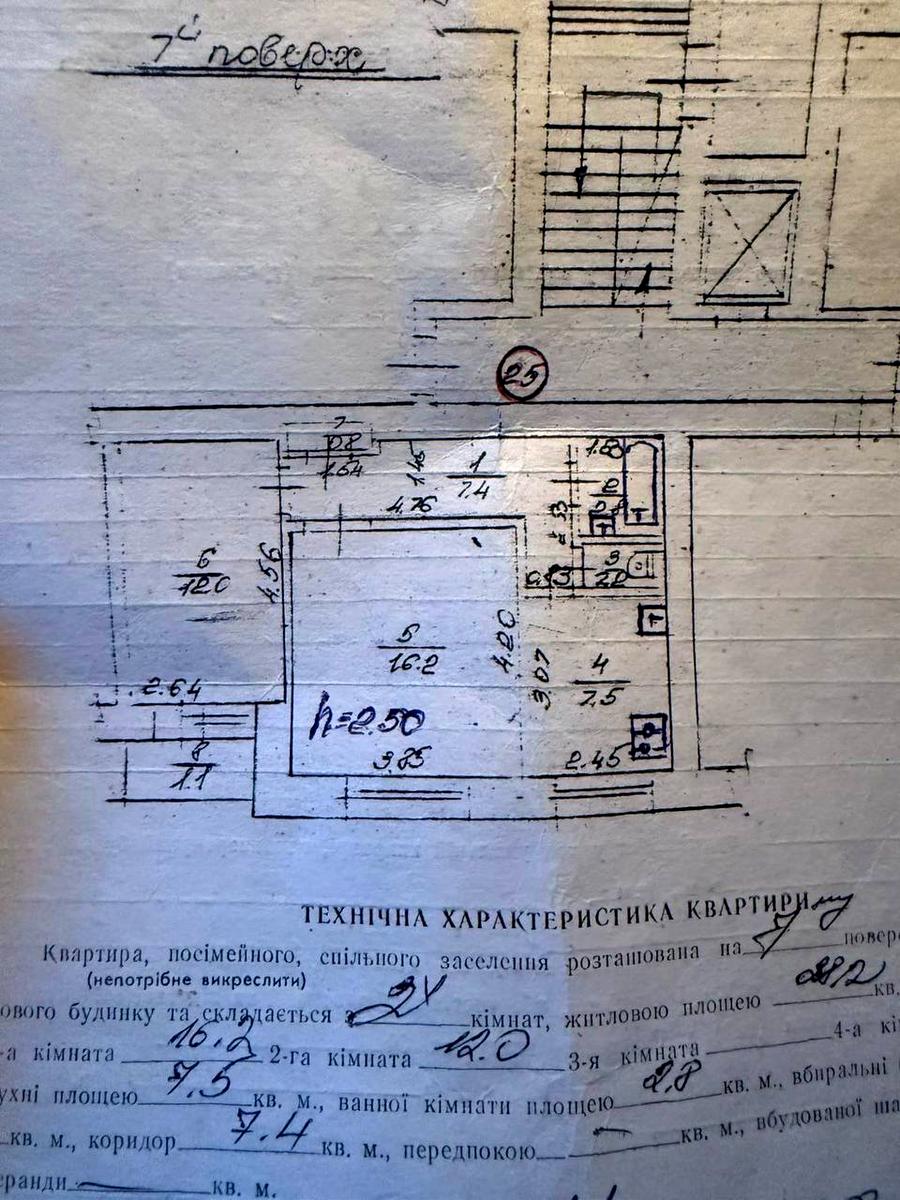 7й поверх
25
7
0.8
1.64
1.45
1
7.4
4.76
1.83
2
2.8
3
0.83
6
12.0
4.56
5
16.2
4.20
3.07
4
7.5
2.64
h=2.50
8
1.1
3.85
2.45
ТЕХНІЧНА ХАРАКТЕРИСТИКА КВАРТИРИ
Квартира, посімейного, спільного заселення розташована на 7му повер
(непотрібне викреслити)
ового будинку та складається з 2х кімнат, житловою площею 28,2 кв.
-а кімната 16.2 2-га кімната 12.0 3-я кімната 4-а кі
ухні площею 7.5 кв. м., ванної кімнати площею 2.8 кв. м., вбиральні
кв. м., коридор 7.4 кв. м., передпокою — кв. м., вбудованої ша
еранди — кв. м.